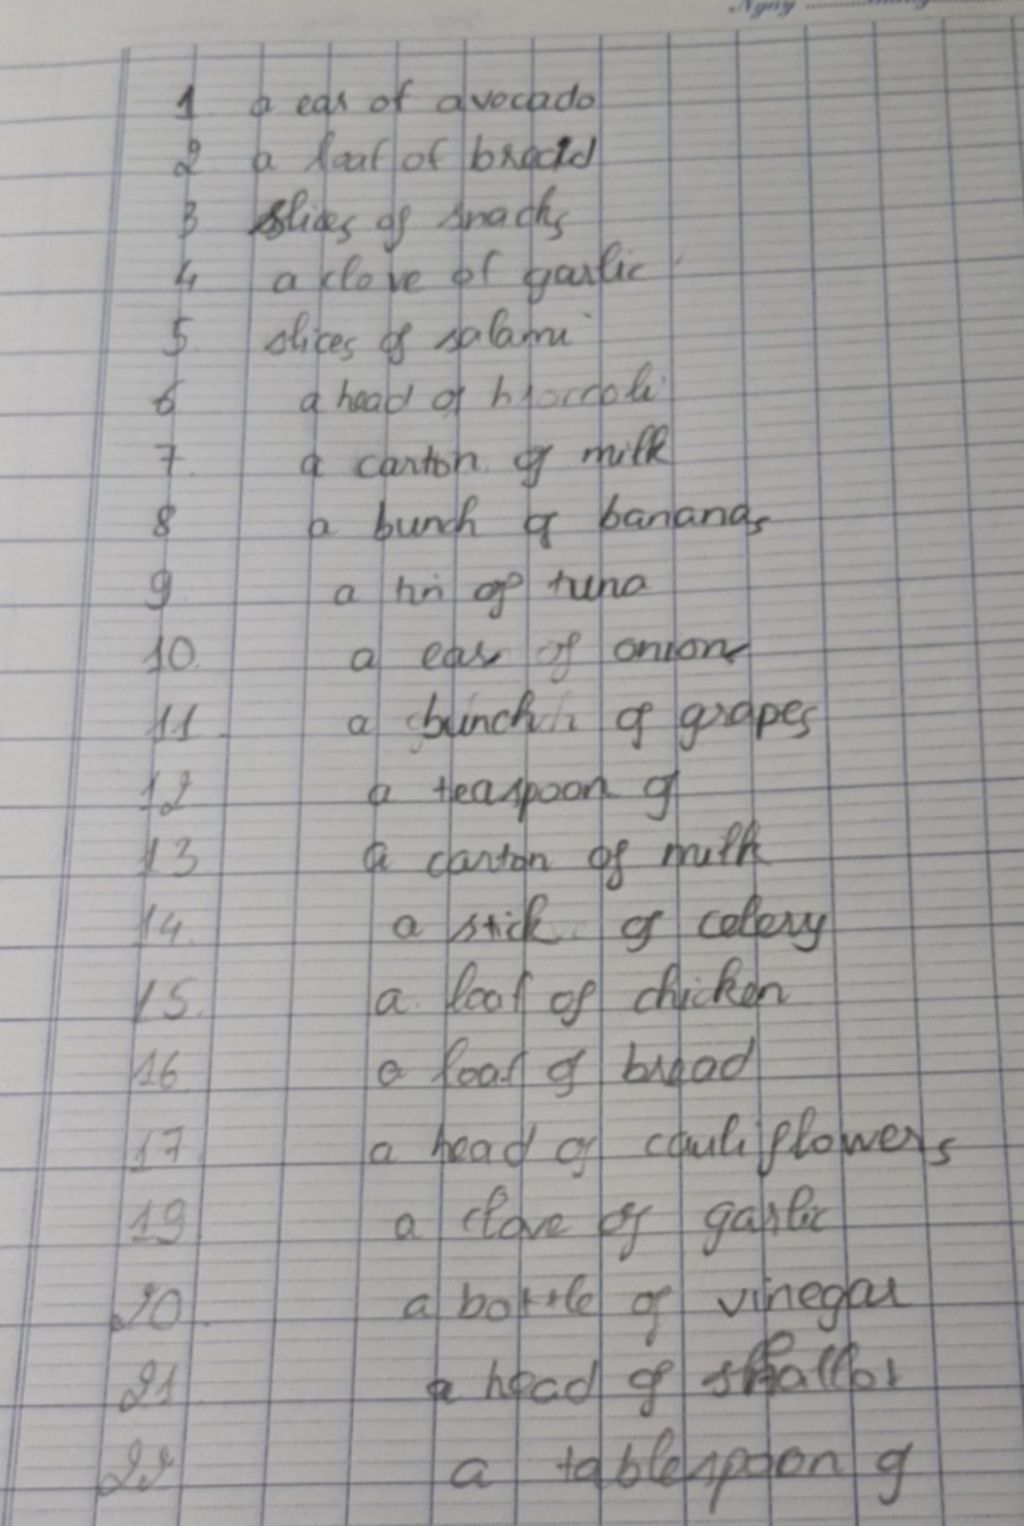 Ngày
1 a ear of avocado
2 a loaf of bread
3 slices of snacks
4 a clove of garlic
5. slices of salami
6 a head of broccoli
7. a carton of milk
8 a bunch of bananas
9 a tin of tuna
10. a ear of onion
11. a bunch of grapes
12 a teaspoon of
13 a carton of milk
14. a stick of celery
15. a loaf of chicken
16 a loaf of bread
17 a head of cauliflowers
19 a clove of garlic
20. a bottle of vinegar
21 a head of shallot
22 a tablespoon of